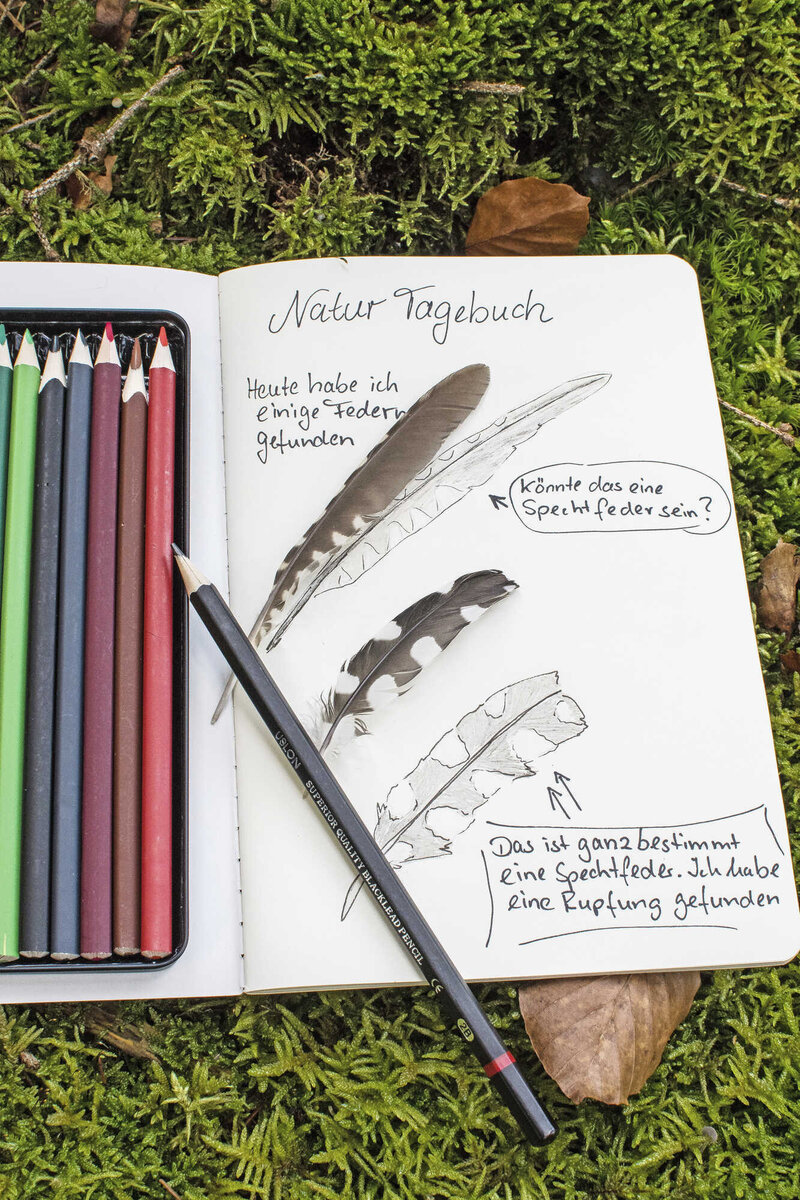 Natur Tagebuch
Heute habe ich
einige Federn
gefunden
Könnte das eine
Spechtfeder sein?
Das ist ganz bestimmt
eine Spechtfeder. Ich habe
eine Rupfung gefunden
SUPERIOR QUALITY BLACKLEAD PENCIL CE